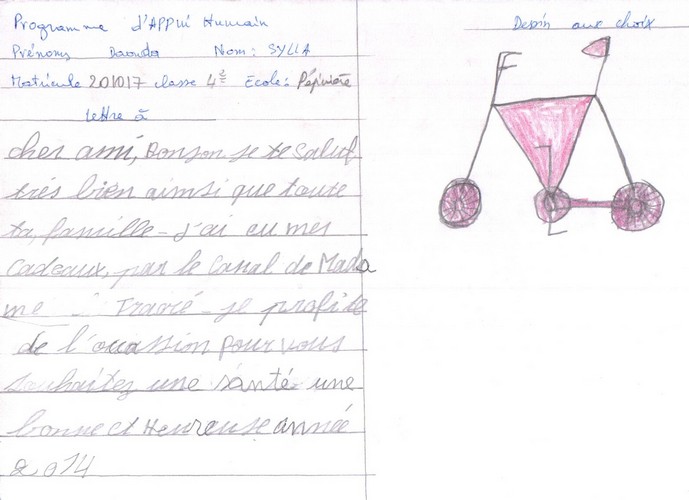 Programme d'APPui Humain
Prénoms Daouda Nom: SYLLA
Matricule 201017 classe 4è Ecole: Pépinière
lettre à
cher ami, Bonson je te salut
très bien ainsi que toute
ta famille - J'ai eu mes
Cadeaux, par le Canal de Mada
me - Traoré - je profite
de l'ocassion pour vous
souhaitez une santé une
bonne et Heureuse année
2014
Dessin aux choix